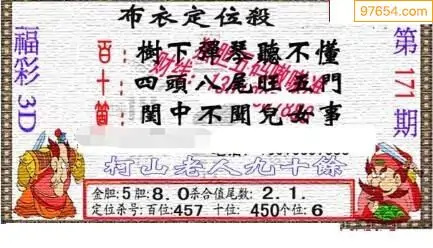 97654.com
布衣定位殺
福彩3D
第171期
百:樹下彈琴聽不懂
十:四頭八尾旺五門
個:閨中不聞兒女事
柯山老人九十條
金胆:5胆:8.0杀合值尾数:2.1.
定位杀号:百位:457 十位:450个位:6